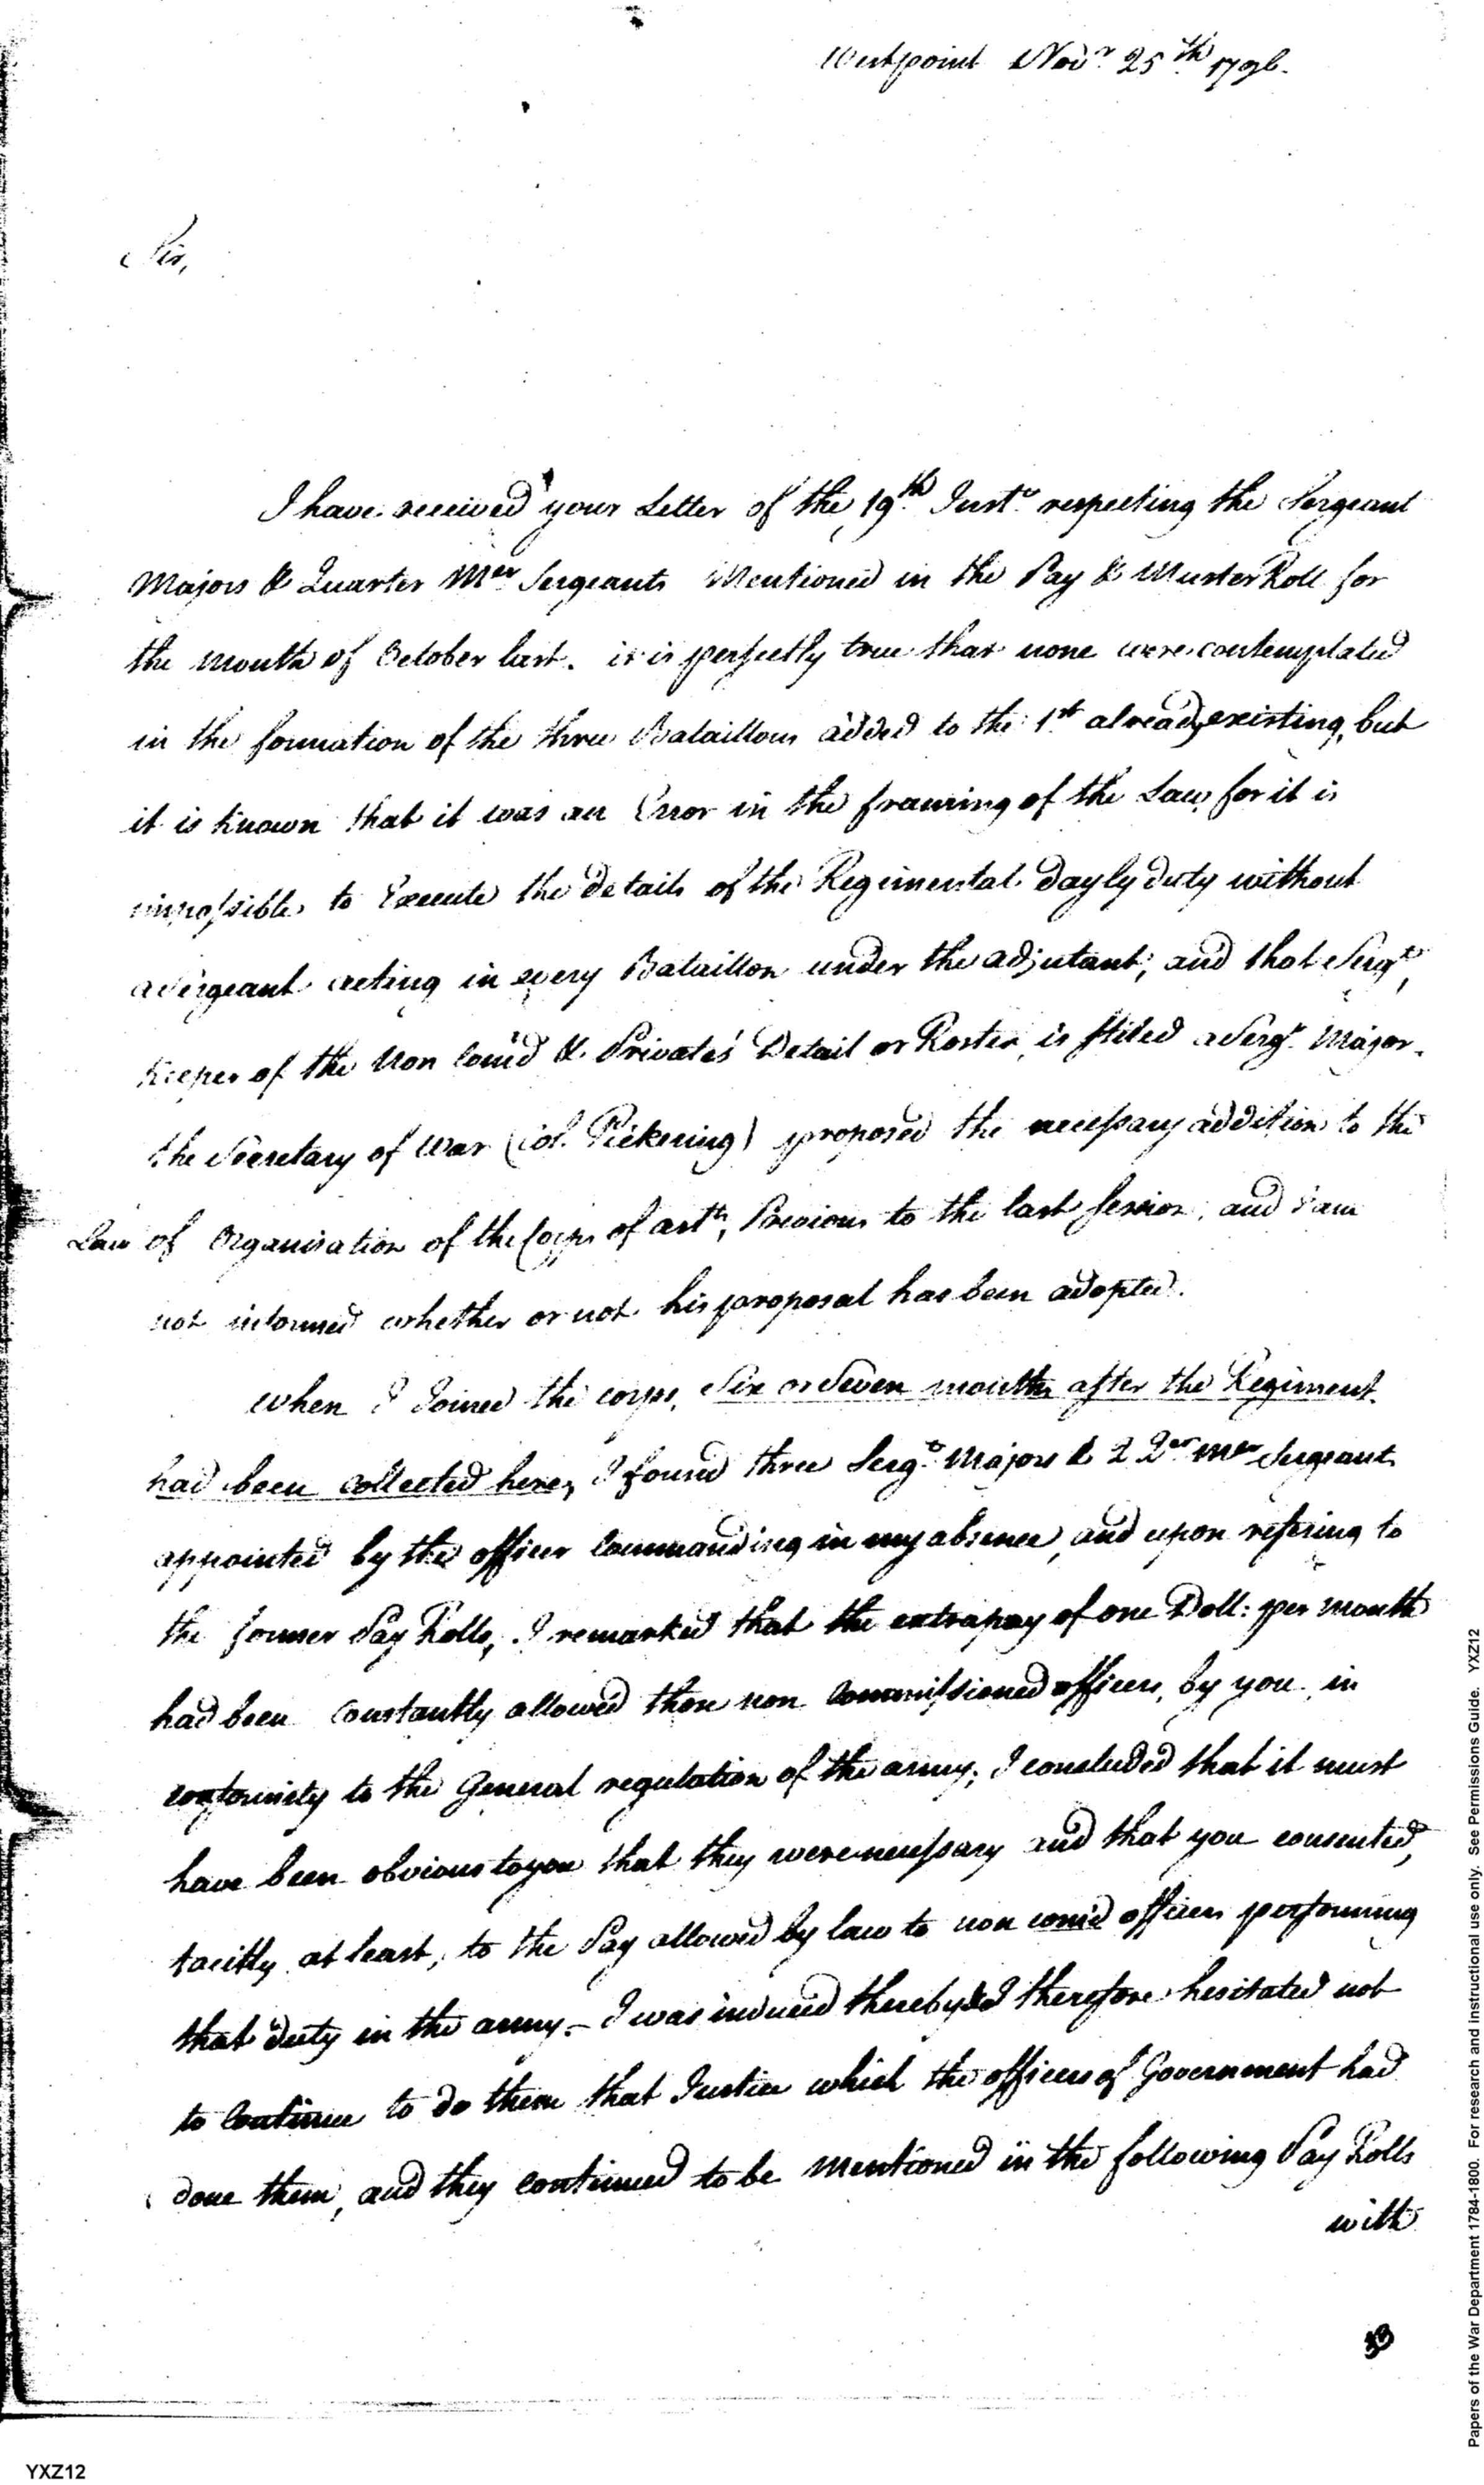 Westpoint Novr. 25th 1796.
Sir,
I have received your Letter of the 19th Instt. respecting the Sergeant
Majors & Quarter Mer Sergeants Mentioned in the Pay & Muster Roll for
the month of October last. it is perfectly true that none were contemplated
in the formation of the three Bataillons added to the 1st already existing, but
it is known that it was an Error in the framing of the Law, for it is
impossible to Execute the details of the Regimental dayly duty without
a Sergeant acting in every Bataillon under the adjutant; and that Sergt,
Keeper of the Non Com'd & Privates' Detail or Roster, is stiled a Sergt. Major.
the Secretary of War (Col. Pickering) proposed the necessary addition to the
Law of Organisation of the Corps of artly, Previous to the last session, and I am
not informed whether or not his proposal has been adopted.
when I Joined the corps, Six or Seven months after the Regiment
had been collected here, I found three Sergt. Majors & 2 Qer Mer Sergeants
appointed by the officer Commanding in my absence, and upon refering to
the former Pay Rolls, I remarked that the extra pay of one Doll: per month
had been Constantly allowed those non Commissioned officers, by you in
conformity to the General regulation of the army; I concluded that it must
have been obvious to you that they were necessary and that you consented,
tacitly at least, to the Pay allowed by law to non com'd officers performing
that duty in the army. – I was induced thereby & I therefore hesitated not
to Continue to do them that Justice which the officers of Government had
done them, and they continued to be mentioned in the following Pay Rolls
with
YXZ12
Papers of the War Department 1784-1800. For research and instructional use only. See Permissions Guide. YXZ12